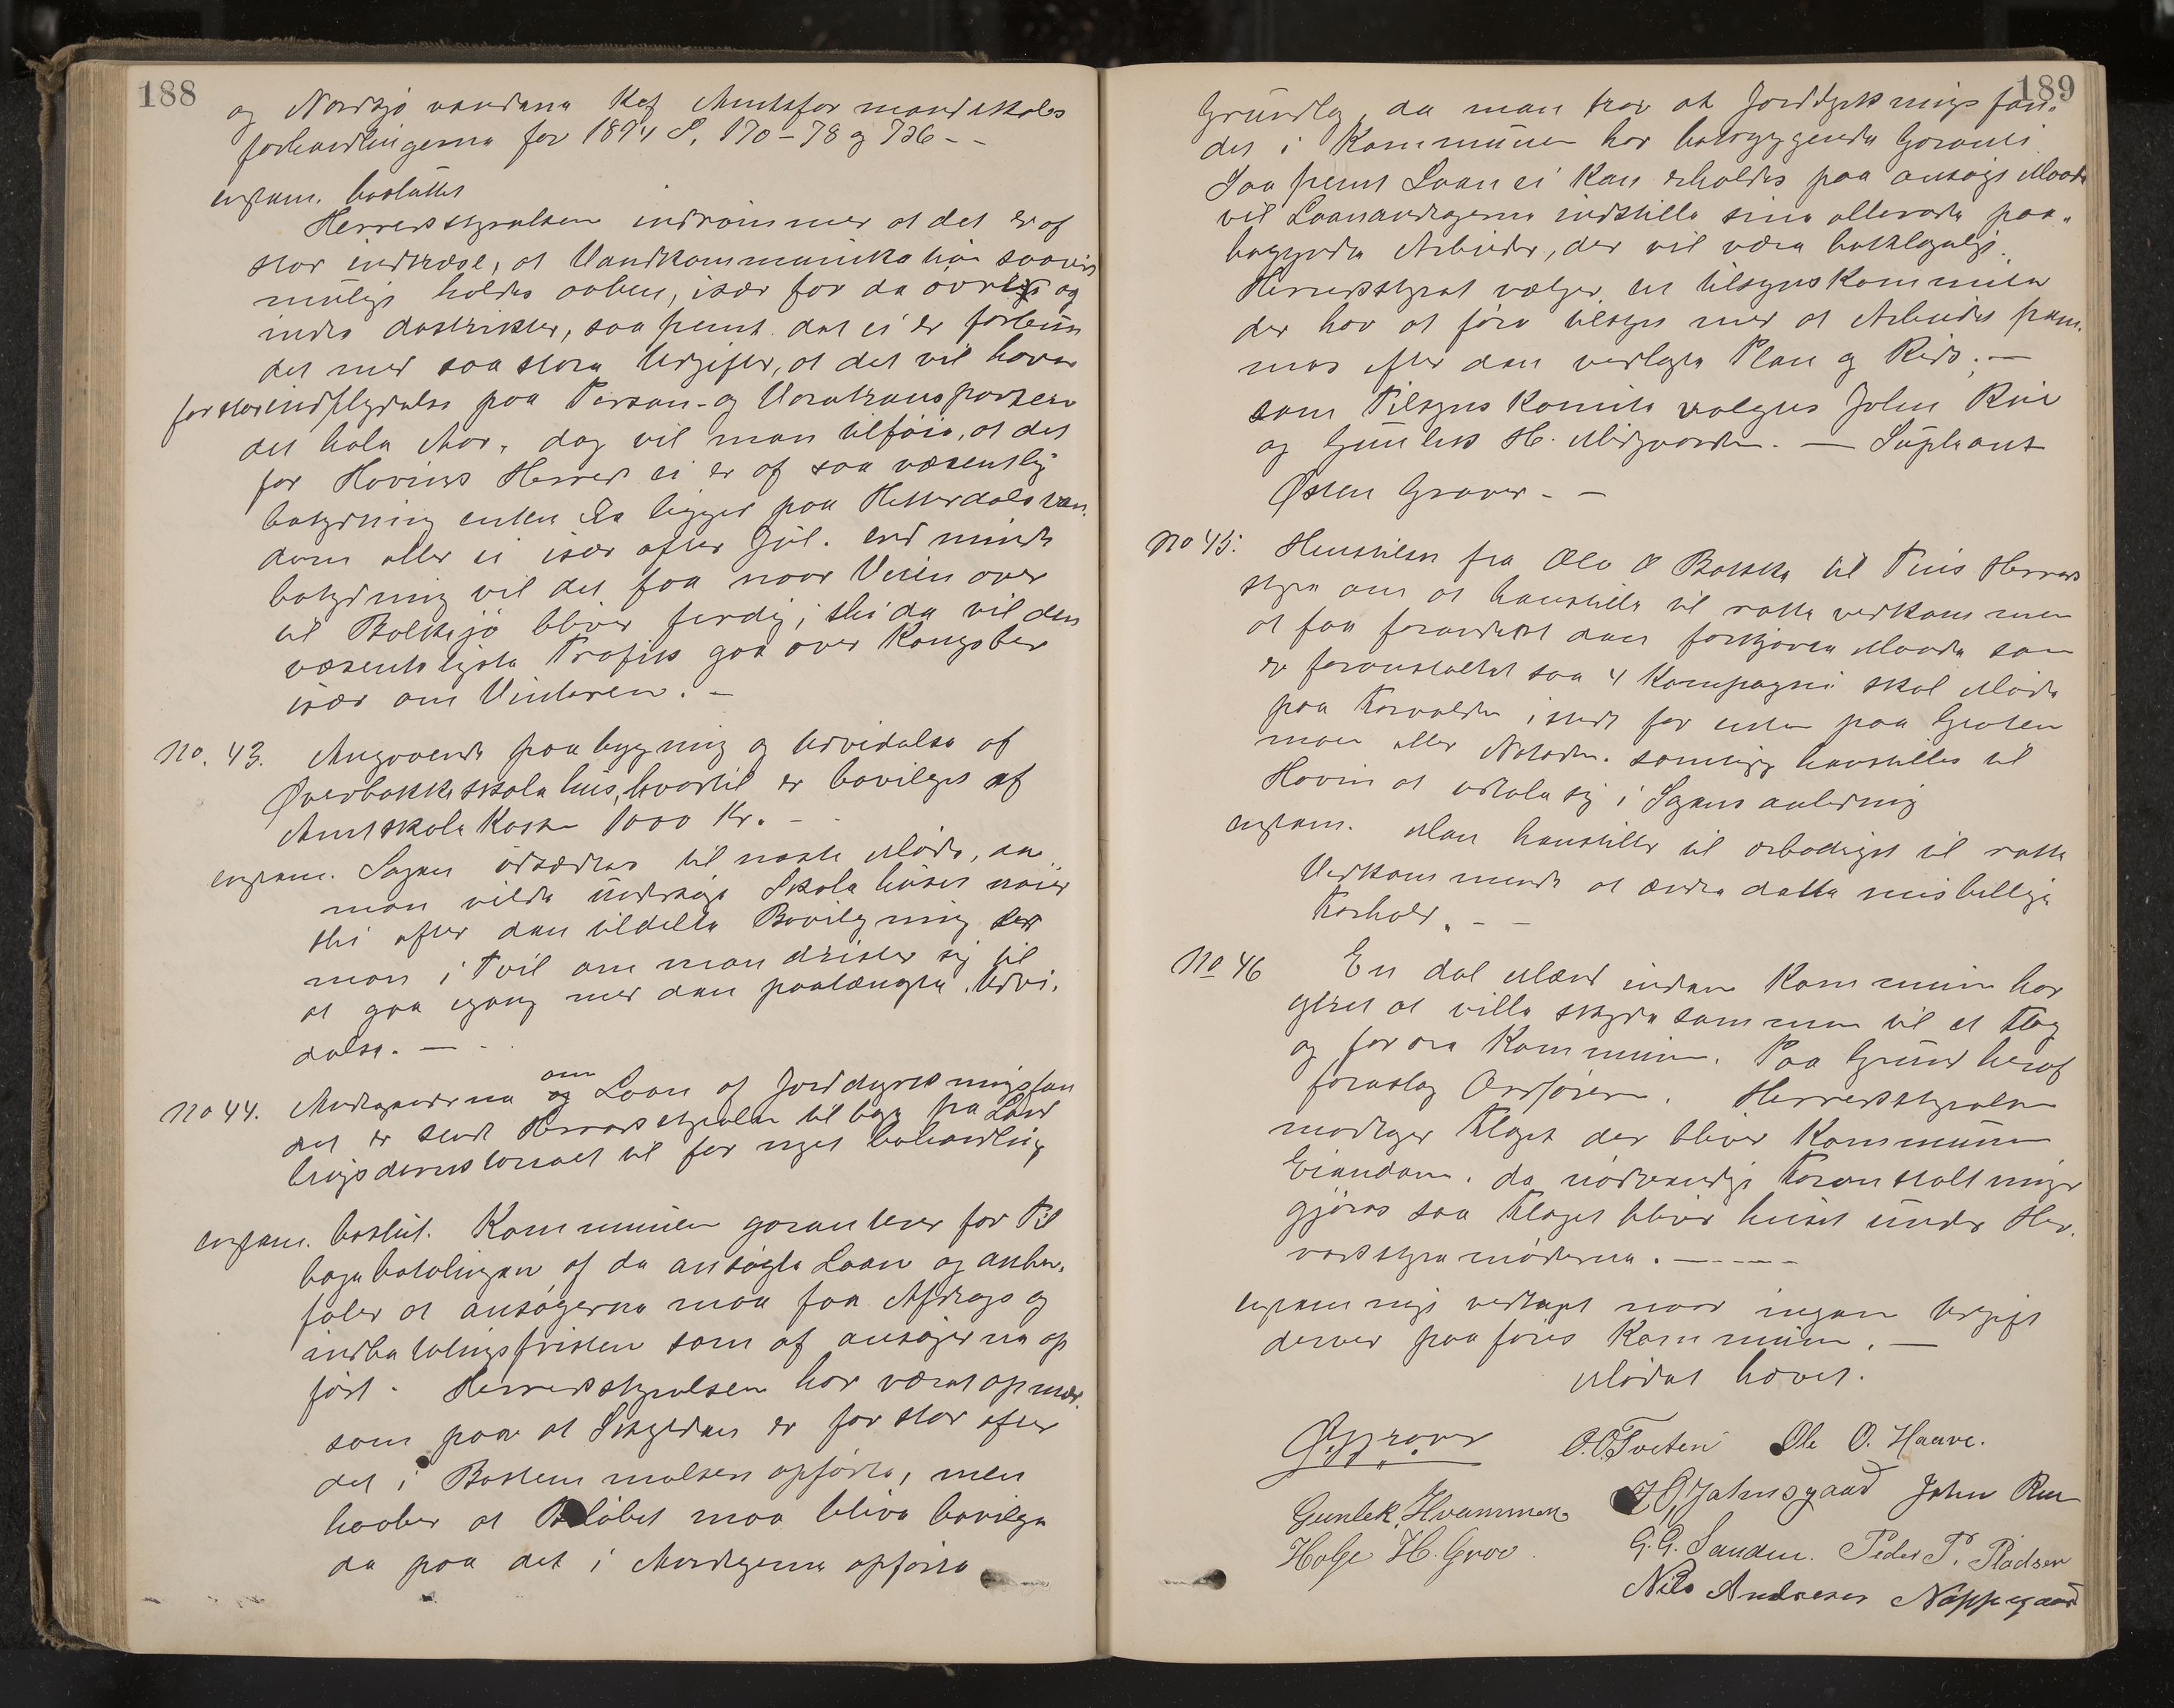 188
og Nordsjø vandene Kef Amtsformandskabs
forhandlingerne for 1894 S. 170-78 og 736 - -
enstem. besluttet
Herredsstyrelsen indrømmer at det er af
stor indtræse, at Vandkommunikation saavit
muligt holdes aaben, især for de øvrige og
indre destrikter, saa fremt det ei er forbun
det med saa store Udgifter, at det vil have
for stor indflydelse paa Person- og Varetransporten
det hele Aar, dog vil man tilføie, at det
for Hovins Herred ei er af saa væsentlig
betydning enten Is ligger paa Hitterdals van-
dene eller ei især efter Jul. end mindre
betydning vil det faa naar Veien over
til Bolkesjø bliver ferdig, thi da vil den
væsentligste Trafik gaa over Kongsber
især om Vinteren. -
No. 43. Angaaende paabygning og Udvidelse af
Øverbøkke skolehus, hvortil er bevilget af
Amtskolekassen 1000 Kr. -
enstem. Sagen udsættes til næste Møde, da
man vilde undersøge Skolehuset nøier
thi efter den tildelte Bevilgning ser
man i Tvil om man drister sig til
at gaa igang med den paatænkte Udvi-
delse. -
No 44. Andragenderne om Laan af Jorddyrkningsfon
det er sendt Herredsstyrelsen tilbage fra Land
brugsdirektoratet til fornyet behandling
enstem. beslut. Kommunen garanterer for Til
bagebetalingen af de ansøgte Laan og anbe-
faler at ansøgerne maa faa Afdrags og
indbetalingsfristen som af ansøgerne op
ført. Herredsstyrelsen har været opmær-
som paa at Skylden er for stor efter
det i Bestemmelsen opførte, men
haaber at Beløbet maa blive bevilget
da paa det i Andragerne opførte
189
Grundlag, da man tror at Jorddyrkningsfon-
det i Kommunen har betryggende Garanti
Saa fremt Laan ei kan erholdes paa ansøgt Maade
vil Laanandragerne indstille sine allerede paa-
begyndte Arbeider, der vil være beklageligt.
Herredsstyret vælger en tilsynskommite
der har at føre tilsyn med at Arbeidet frem-
mes efter den vedlagte Plan og Rids. -
som Tilsyns Komite valgtes John Rue
og Gunlek H. Midgaarden. - Supleant
Østen Graver - -
No 45. Henstillen fra Ole O Bakka til Tins Herreds
styre om at henstille til rette vedkommen
at faa forandret den forkjærte Maade som
er foranstaltet saa 4 Kompagni skal Møde
paa istedt for enten paa Groten
moen eller Notodden. samtidig henstilles til
Hovin at udtale sig i Sagens anledning
enstem. Man henstiller til ærbødigst til rette
Vedkommende at ændre dette misbillige
Forhold. - -
No 46 En del Mænd inden Kommunen har
ytret at ville skyde sammen til et Flag
og forære Kommunen. Paa Grund heraf
foreslog Ordføren. Herredsstyrelsen
modtager Flaget der bliver Kommunens
Eiendom. da nødvendige Foranstaltninger
gjøres saa Flaget bliver heiset under Her-
redsstyremøderne. - - - -
enstemmigt vedtaget naar ingen Udgift
derved paaføres Kommunen. -
Mødet hævet.
G. Graver O. O. Tveten Ole O. Haave.
Gunlek Hvammen H O Jalmsgaard John Rue
Helge H. Grov G. G. Sanden. Peder P. Pladsen
Nils Andresen Nappegaard